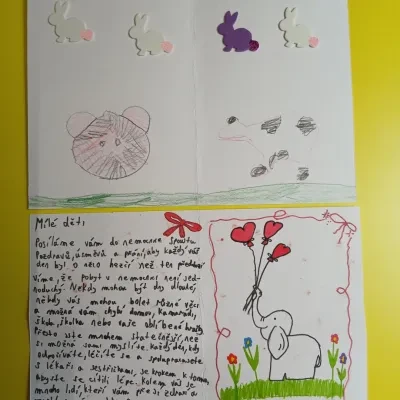 Milé děti,
Posíláme vám do nemocnice spoustu
Pozdravů, úsměvů a přání, aby každý váš
den byl o něco hezčí než ten předchozí
víme, že pobyt v nemocnici není jed-
noduchý. Někdy mohou být dny dlouhé,
někdy vás mohou bolet různé věci
a možná vám chybí domov, kamarádi,
škola, školka nebo vaše oblíbené hračky
Přesto jste mnohem statečnější, než
si možná sami myslíte. Každý den, kdy
odpočíváte, léčíte se a spolupracujete
s lékaři a sestřičkami, je krokem k tomu,
abyste se cítili lépe. Kolem vás je
mnoho lidí, kteří vám přejí zdraví a